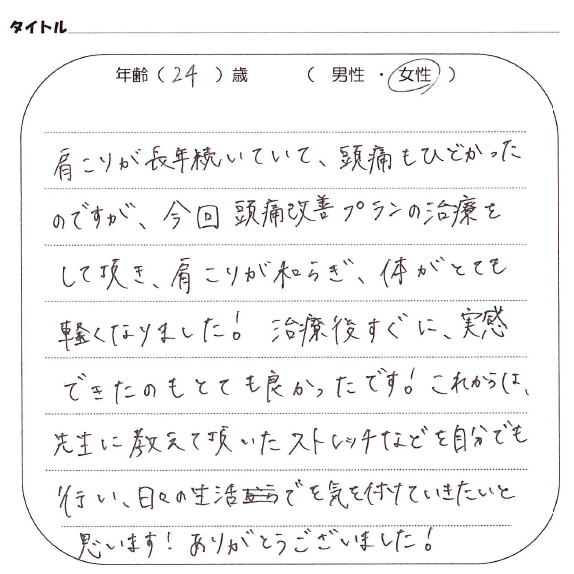 タイトル
年齢（ 24 ）歳 （ 男性 ・ 女性 ）
肩こりが長年続いていて、頭痛もひどかった
のですが、今回 頭痛改善プランの治療を
して頂き、肩こりが和らぎ、体がとても
軽くなりました！ 治療後すぐに、実感
できたのもとても良かったです！これからは、
先生に教えて頂いたストレッチなどを自分でも
行い、日々の生活でを気を付けていきたいと
思います！ありがとうございました！